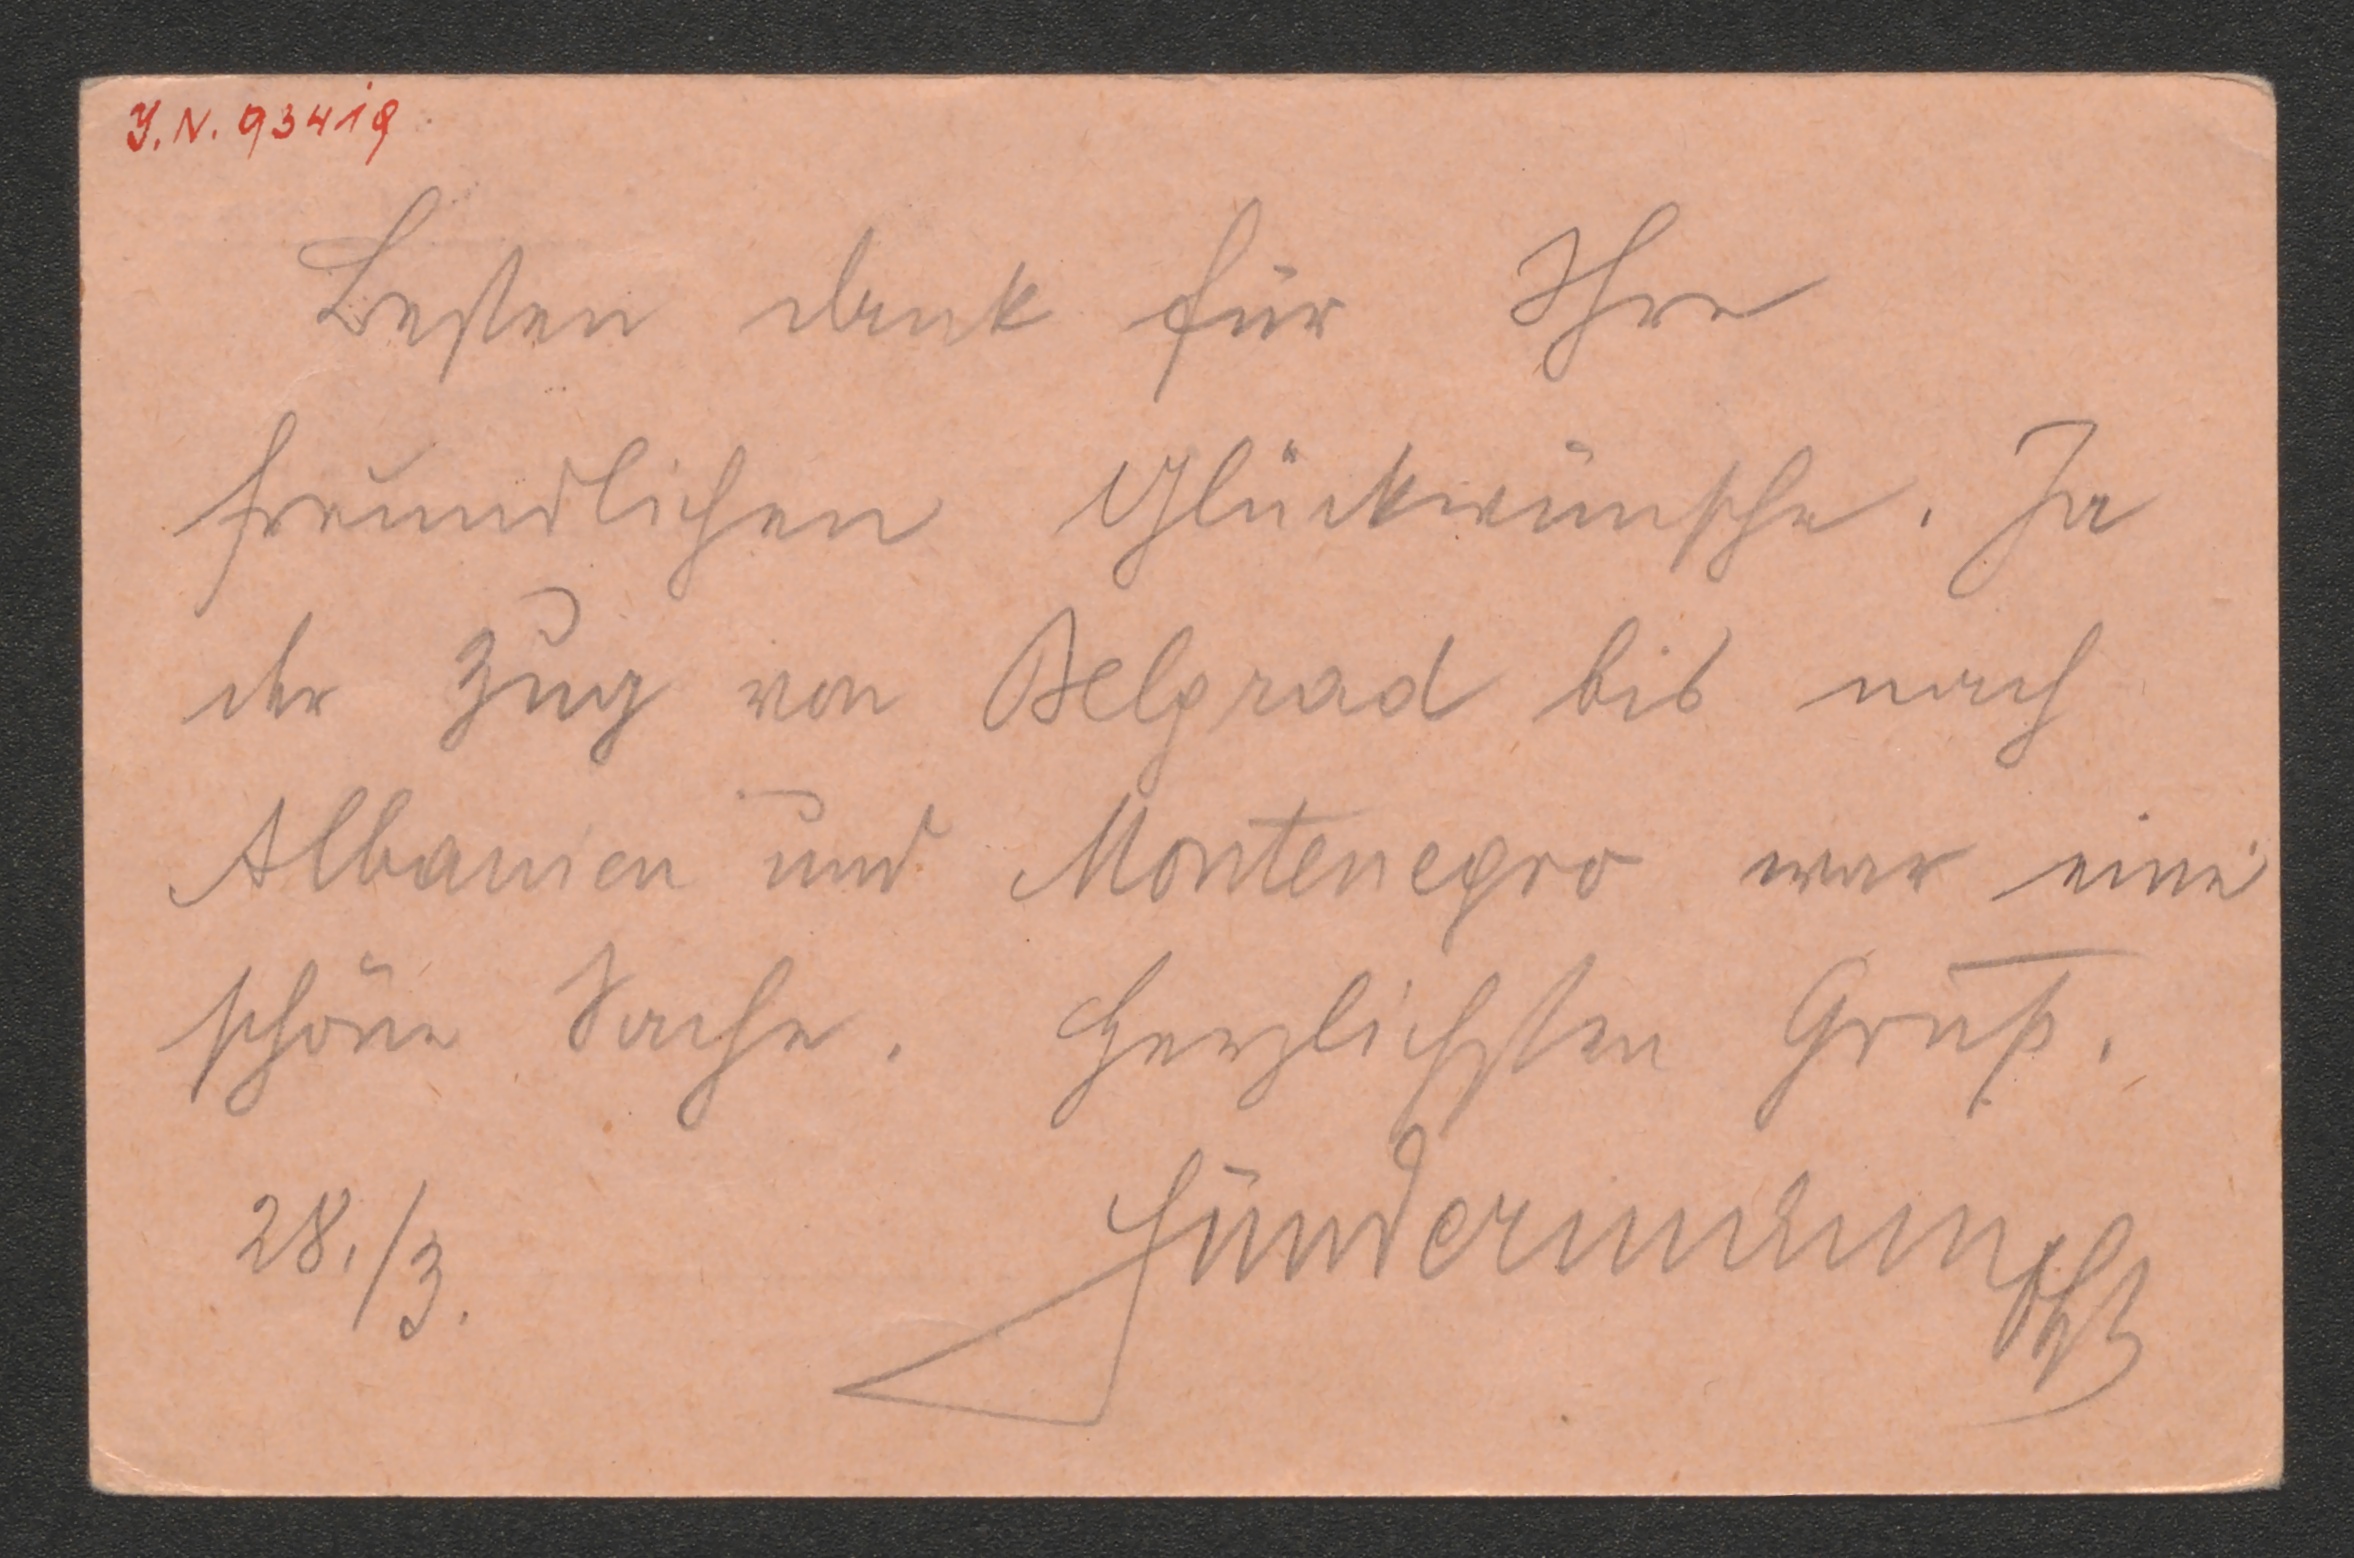 J.N. 93419
Besten dank für Ihre
freundlichen Glückwünsche. Ja
der Zug von Belgrad bis nach
Albanien und Montenegro war eine
schöne Sache. Herzlichsten Gruß.
28./3.